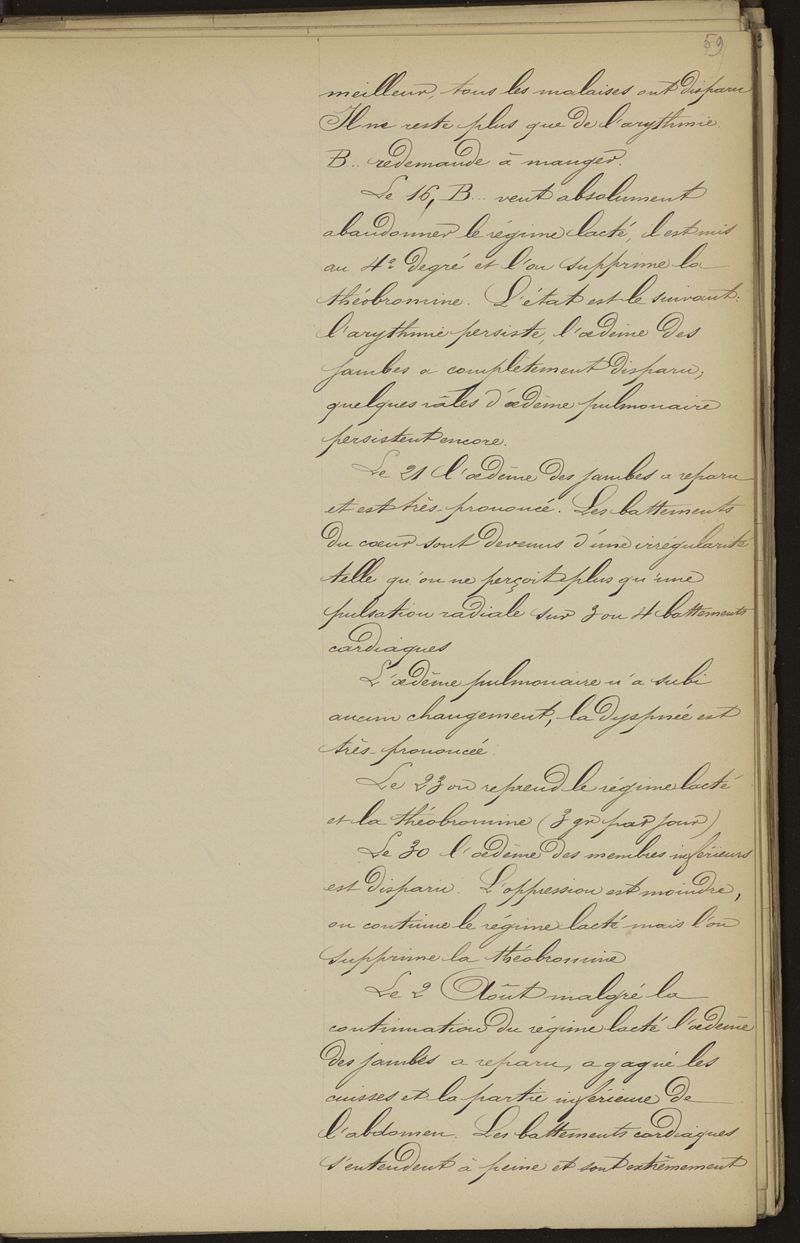 59
meilleur, tous les malaises ont disparu
Il ne reste plus que de l'arythmie.
B... redemande à manger.
Le 16, B... veut absolument
abandonner le régime lacté, il est mis
au 4e degré et l'on supprime la
théobromine. L'état est le suivant:
l'arythmie persiste, l'œdème des
jambes a complètement disparu,
quelques râles d'œdème pulmonaire
persistent encore.
Le 21 l'œdème des jambes a reparu
et est très prononcé. Les battements
du cœur sont devenus d'une irrégularité
telle qu'on ne perçoit plus qu'une
pulsation radiale sur 3 ou 4 battements
cardiaques
L'œdème pulmonaire n'a subi
aucun changement, la dyspnée est
très-prononcée
Le 23 on reprend le régime lacté
et la théobromine (3 gr par jour)
Le 30 l'œdème des membres inférieurs
est disparu. L'oppression est moindre,
on continue le régime lacté mais l'on
supprime la théobromine
Le 2 Août malgré la
continuation du régime lacté l'œdème
des jambes a reparu, a gagné les
cuisses et la partie inférieure de
l'abdomen. Les battements cardiaques
s'entendent à peine et sont extrêmement